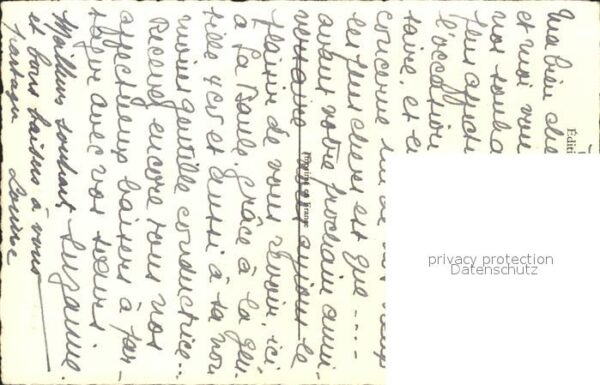 Ma bien chè
et moi vou
nos souhai
plus affect
l'occasion
taire, et en
concerne un de nos
les plus chers est que ----
avant votre prochain anni-
versaire nous ayions le
plaisir de vous revoir, ici
à La Baule, grâce à la gen-
tille 4cv et aussi à ta non
moins gentille conductrice...
Recevez encore tous nos
affectueux baisers à par-
tager avec vos soeurs
Suzanne
Meilleurs souhaits
et bons baisers à vous
partager Louise
Éditi
Imprimé en France
privacy protection
Datenschutz